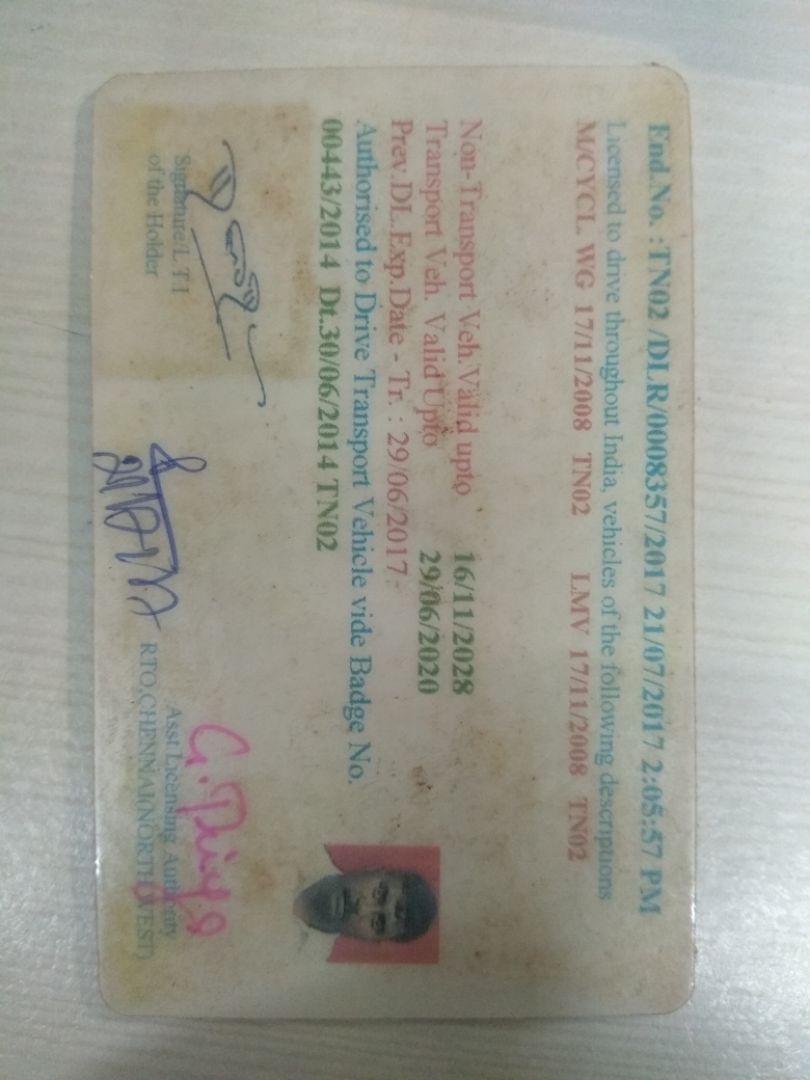 End.No. :TN02 /DLR/0008357/2017 21/07/2017 2:05:57 PM
Licensed to drive throughout India, vehicles of the following descriptions
M/CYCL. WG 17/11/2008 TN02 LMV 17/11/2008 TN02
Non-Transport Veh.Valid upto 16/11/2028
Transport Veh. Valid Upto 29/06/2020
Prev.DL.Exp.Date - Tr. : 29/06/2017-
Authorised to Drive Transport Vehicle vide Badge No.
00443/2014 Dt.30/06/2014 TN02
Signature/L T I
of the Holder
Asst Licensing Authority
RTO,CHENNAI(NORTH WEST)